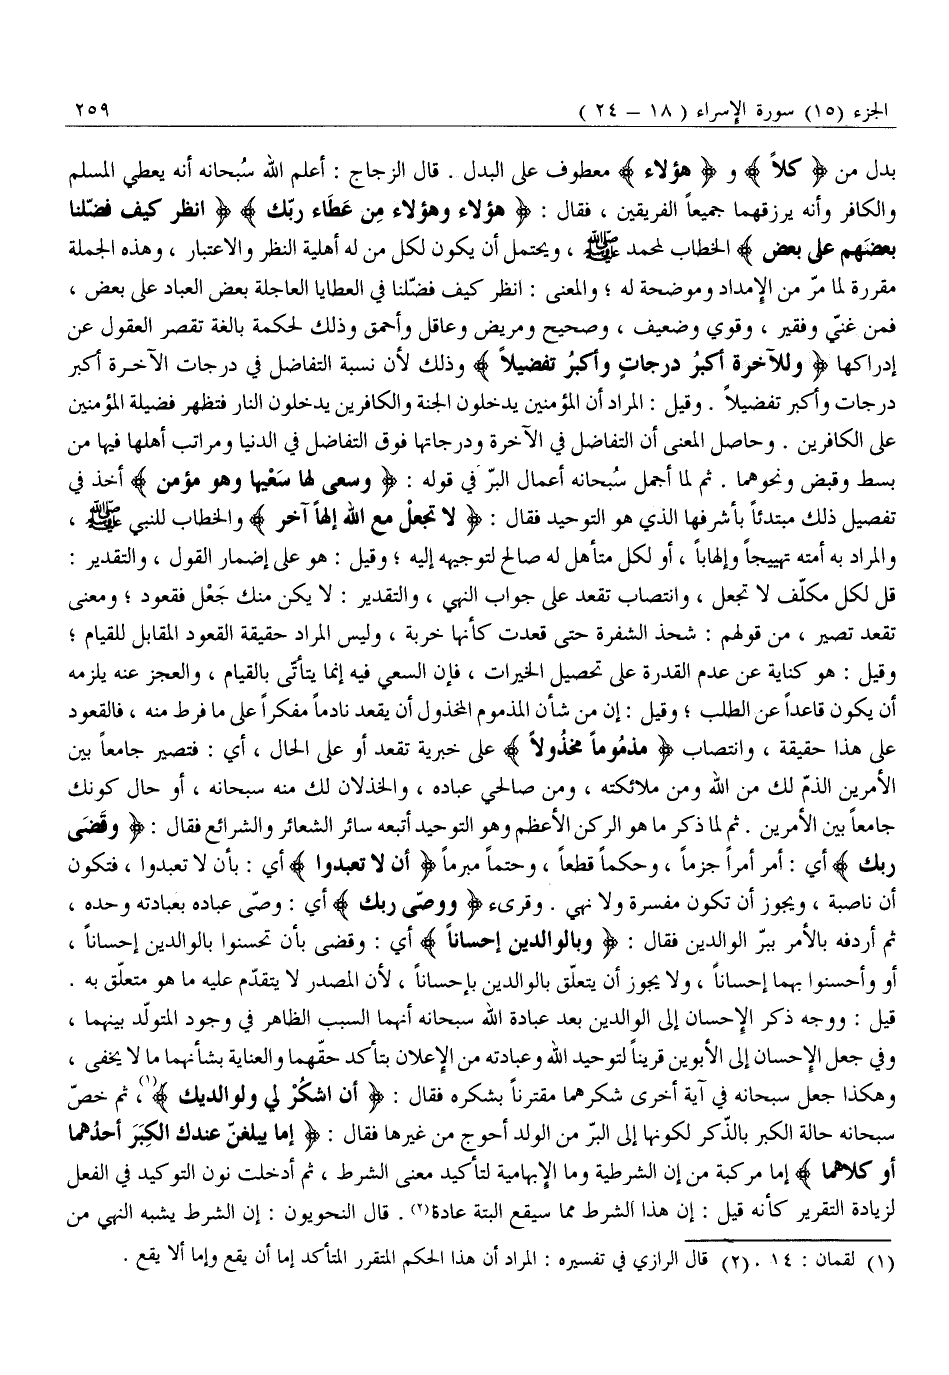 الجزء (١٥) سورة الإسراء ( ١٨ – ٢٤ ) ٢٥٩
بدل من ﴿ كلاً ﴾ و ﴿ هؤلاء ﴾ معطوف على البدل . قال الزجاج : أعلم الله سُبحانه أنه يعطي المسلم
والكافر وأنه يرزقهما جميعاً الفريقين ، فقال : ﴿ هؤلاء وهؤلاء مِن عَطَاء ربّك ﴾ ﴿ انظر كيف فضّلنا
بعضَهم على بعض ﴾ الخطاب لمحمد ﷺ ، ويحتمل أن يكون لكل من له أهلية النظر والاعتبار ، وهذه الجملة
مقررة لما مرّ من الإمداد وموضحة له ؛ والمعنى : انظر كيف فضّلنا في العطايا العاجلة بعض العباد على بعض ،
فمن غنيّ وفقير ، وقوي وضعيف ، وصحيح ومريض وعاقل وأحمق وذلك لحكمة بالغة تقصر العقول عن
إدراكها ﴿ وللآخرة أكبرُ درجاتٍ وأكبرُ تفضيلاً ﴾ وذلك لأن نسبة التفاضل في درجات الآخرة أكبر
درجات وأكبر تفضيلاً . وقيل : المراد أن المؤمنين يدخلون الجنة والكافرين يدخلون النار فتظهر فضيلة المؤمنين
على الكافرين . وحاصل المعنى أن التفاضل في الآخرة ودرجاتها فوق التفاضل في الدنيا ومراتب أهلها فيها من
بسط وقبض ونحوهما . ثم لما أجمل سُبحانه أعمال البرّ في قوله : ﴿ وسعى لها سَعْيها وهو مؤمن ﴾ أخذ في
تفصيل ذلك مبتدئاً بأشرفها الذي هو التوحيد فقال : ﴿ لا تجعلْ مع الله إلهاً آخر ﴾ والخطاب للنبي ﷺ ،
والمراد به أمته تهييجاً وإلهاباً ، أو لكل متأهل له صالح لتوجيهه إليه ؛ وقيل : هو على إضمار القول ، والتقدير :
قل لكل مكلّف لا تجعل ، وانتصاب تقعد على جواب النهي ، والتقدير : لا يكن منك جَعْل فقعود ؛ ومعنى
تقعد تصير ، من قولهم : شحذ الشفرة حتى قعدت كأنها خربة ، وليس المراد حقيقة القعود المقابل للقيام ؛
وقيل : هو كناية عن عدم القدرة على تحصيل الخيرات ، فإن السعي فيه إنما يتأتّى بالقيام ، والعجز عنه يلزمه
أن يكون قاعداً عن الطلب ؛ وقيل : إن من شأن المذموم المخذول أن يقعد نادماً مفكراً على ما فرط منه ، فالقعود
على هذا حقيقة ، وانتصاب ﴿ مذمُوماً مخذُولاً ﴾ على خبرية تقعد أو على الحال ، أي : فتصير جامعاً بين
الأمرين الذمّ لك من الله ومن ملائكته ، ومن صالحي عباده ، والخذلان لك منه سبحانه ، أو حال كونك
جامعاً بين الأمرين . ثم لما ذكر ما هو الركن الأعظم وهو التوحيد أتبعه سائر الشعائر والشرائع فقال : ﴿ وقَضَى
ربك ﴾ أي : أمر أمراً جزماً ، وحكماً قطعاً ، وحتماً مبرماً ﴿ أن لا تعبدوا ﴾ أي : بأن لا تعبدوا ، فتكون
أن ناصبة ، ويجوز أن تكون مفسرة ولا نهي . وقرىء ﴿ ووصّى ربك ﴾ أي : وصّى عباده بعبادته وحده ،
ثم أردفه بالأمر ببرّ الوالدين فقال : ﴿ وبالوالدين إحساناً ﴾ أي : وقضى بأن تحسنوا بالوالدين إحساناً ،
أو وأحسنوا بهما إحساناً ، ولا يجوز أن يتعلّق بالوالدين بإحساناً ، لأن المصدر لا يتقدّم عليه ما هو متعلّق به .
قيل : ووجه ذكر الإحسان إلى الوالدين بعد عبادة الله سبحانه أنهما السبب الظاهر في وجود المتولّد بينهما ،
وفي جعل الإحسان إلى الأبوين قريناً لتوحيد الله وعبادته من الإعلان بتأكد حقّهما والعناية بشأنهما ما لا يخفى ،
وهكذا جعل سبحانه في آية أخرى شكرهما مقترناً بشكره فقال : ﴿ أن اشكُرْ لي ولوالديك ﴾(١)، ثم خصّ
سبحانه حالة الكبر بالذّكر لكونها إلى البرّ من الولد أحوج من غيرها فقال : ﴿ إما يبلغنّ عندك الكِبَرَ أحدُهما
أو كلاهما ﴾ إما مركبة من إن الشرطية وما الإبهامية لتأكيد معنى الشرط ، ثم أدخلت نون التوكيد في الفعل
لزيادة التقرير كأنه قيل : إن هذا الشرط مما سيقع البتة عادة(٢) . قال النحويون : إن الشرط يشبه النهي من
(١) لقمان : ١٤ . (٢) قال الرازي في تفسيره : المراد أن هذا الحكم المتقرر المتأكد إما أن يقع وإما ألا يقع .